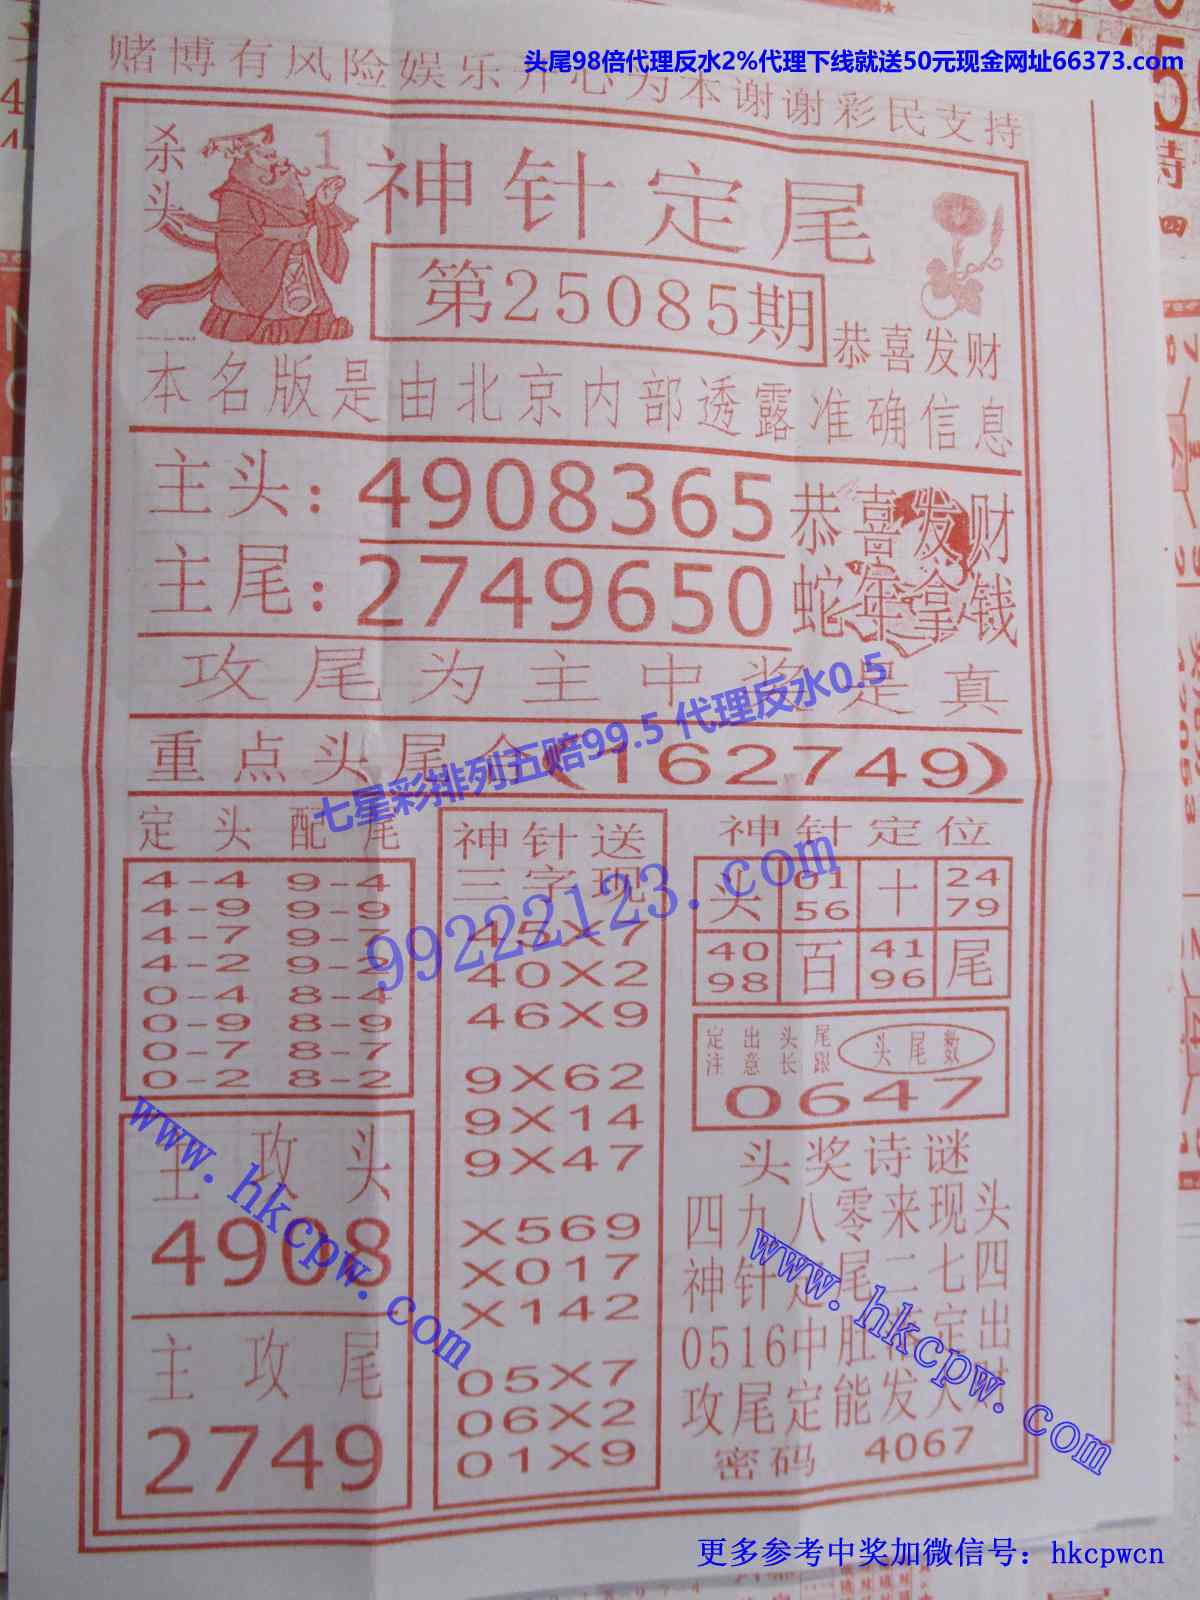 头尾98倍代理反水2%代理下线就送50元现金网址66373.com
赌博有风险娱乐开心为本谢谢彩民支持
杀头
1
神针定尾
第25085期
恭喜发财
本名版是由北京内部透露准确信息
主头:4908365
主尾:2749650
恭喜发财
蛇年拿钱
攻尾为主中奖是真
七星彩排列五赔99.5 代理反水0.5
重点头尾合(162749)
定头配尾
4-4 9-4
4-9 9-9
4-7 9-7
4-2 9-2
0-4 8-4
0-9 8-9
0-7 8-7
0-2 8-2
主攻头
4908
主攻尾
2749
神针送
三字现
45X7
40X2
46X9
9X62
9X14
9X47
X569
X017
X142
05X7
06X2
01X9
99222123.com
神针定位
头 01 56 十 24 79
40 98 百 41 96 尾
定出头尾
注意长跟
头尾数
0647
头奖诗谜
四九八零来现头
神针定尾二七四
0516中肚落定出
攻尾定能发大财
密码 4067
www.hkcpw.com
www.hkcpw.com
更多参考中奖加微信号：hkcpwcn